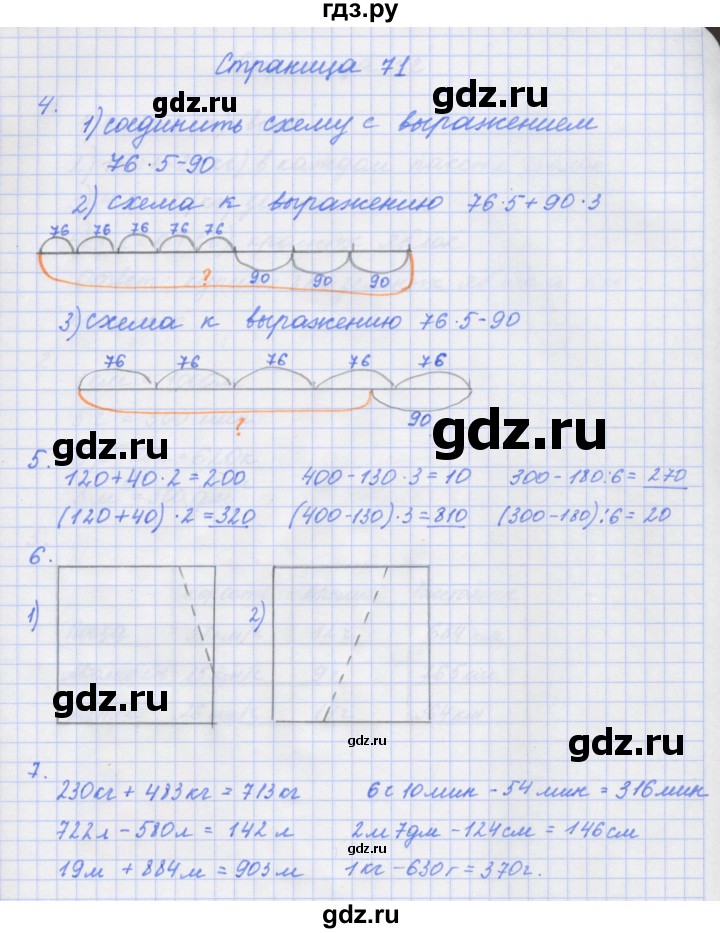 гдз.ру
Страница 71
4.
gdz.ru
gdz.ru
1) соединить схему с выражением
76·5-90
2) схема к выражению 76·5+90·3
76 76 76 76 76
90 90 90
?
gdz.ru
gdz.ru
3) схема к выражению 76·5-90
76 76 76 76 76
90
?
gdz.ru
gdz.ru
5.
120+40·2=200 400-130·3=10 300-180:6=270
(120+40)·2=320 (400-130)·3=810 (300-180):6=20
6.
1) 2)
gdz.ru
gdz.ru
gdz.ru
7.
230кг + 483кг = 713кг 6 с 10мин - 54мин = 316мин
722л - 580л = 142 л 2м 7дм - 124см = 146см
19м + 884м = 903м 1кг - 630г = 370г.
gdz.ru
gdz.ru
gdz.ru